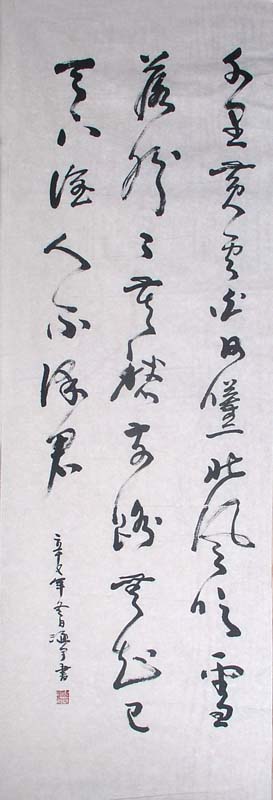 千里黄云白日曛北风吹雪
落纷々莫愁前路無知己
天下谁人不识君
年冬日書